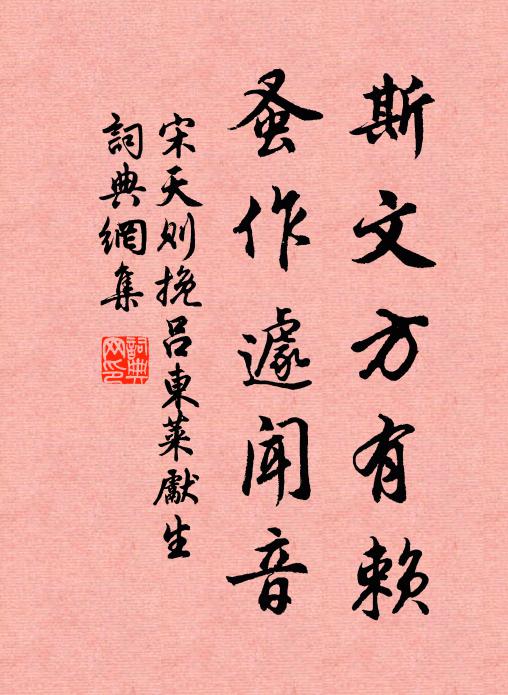 斯文方有賴
蚤作遽聞音
宋天则挽吕東萊獻生
詞典網集
詞典網印